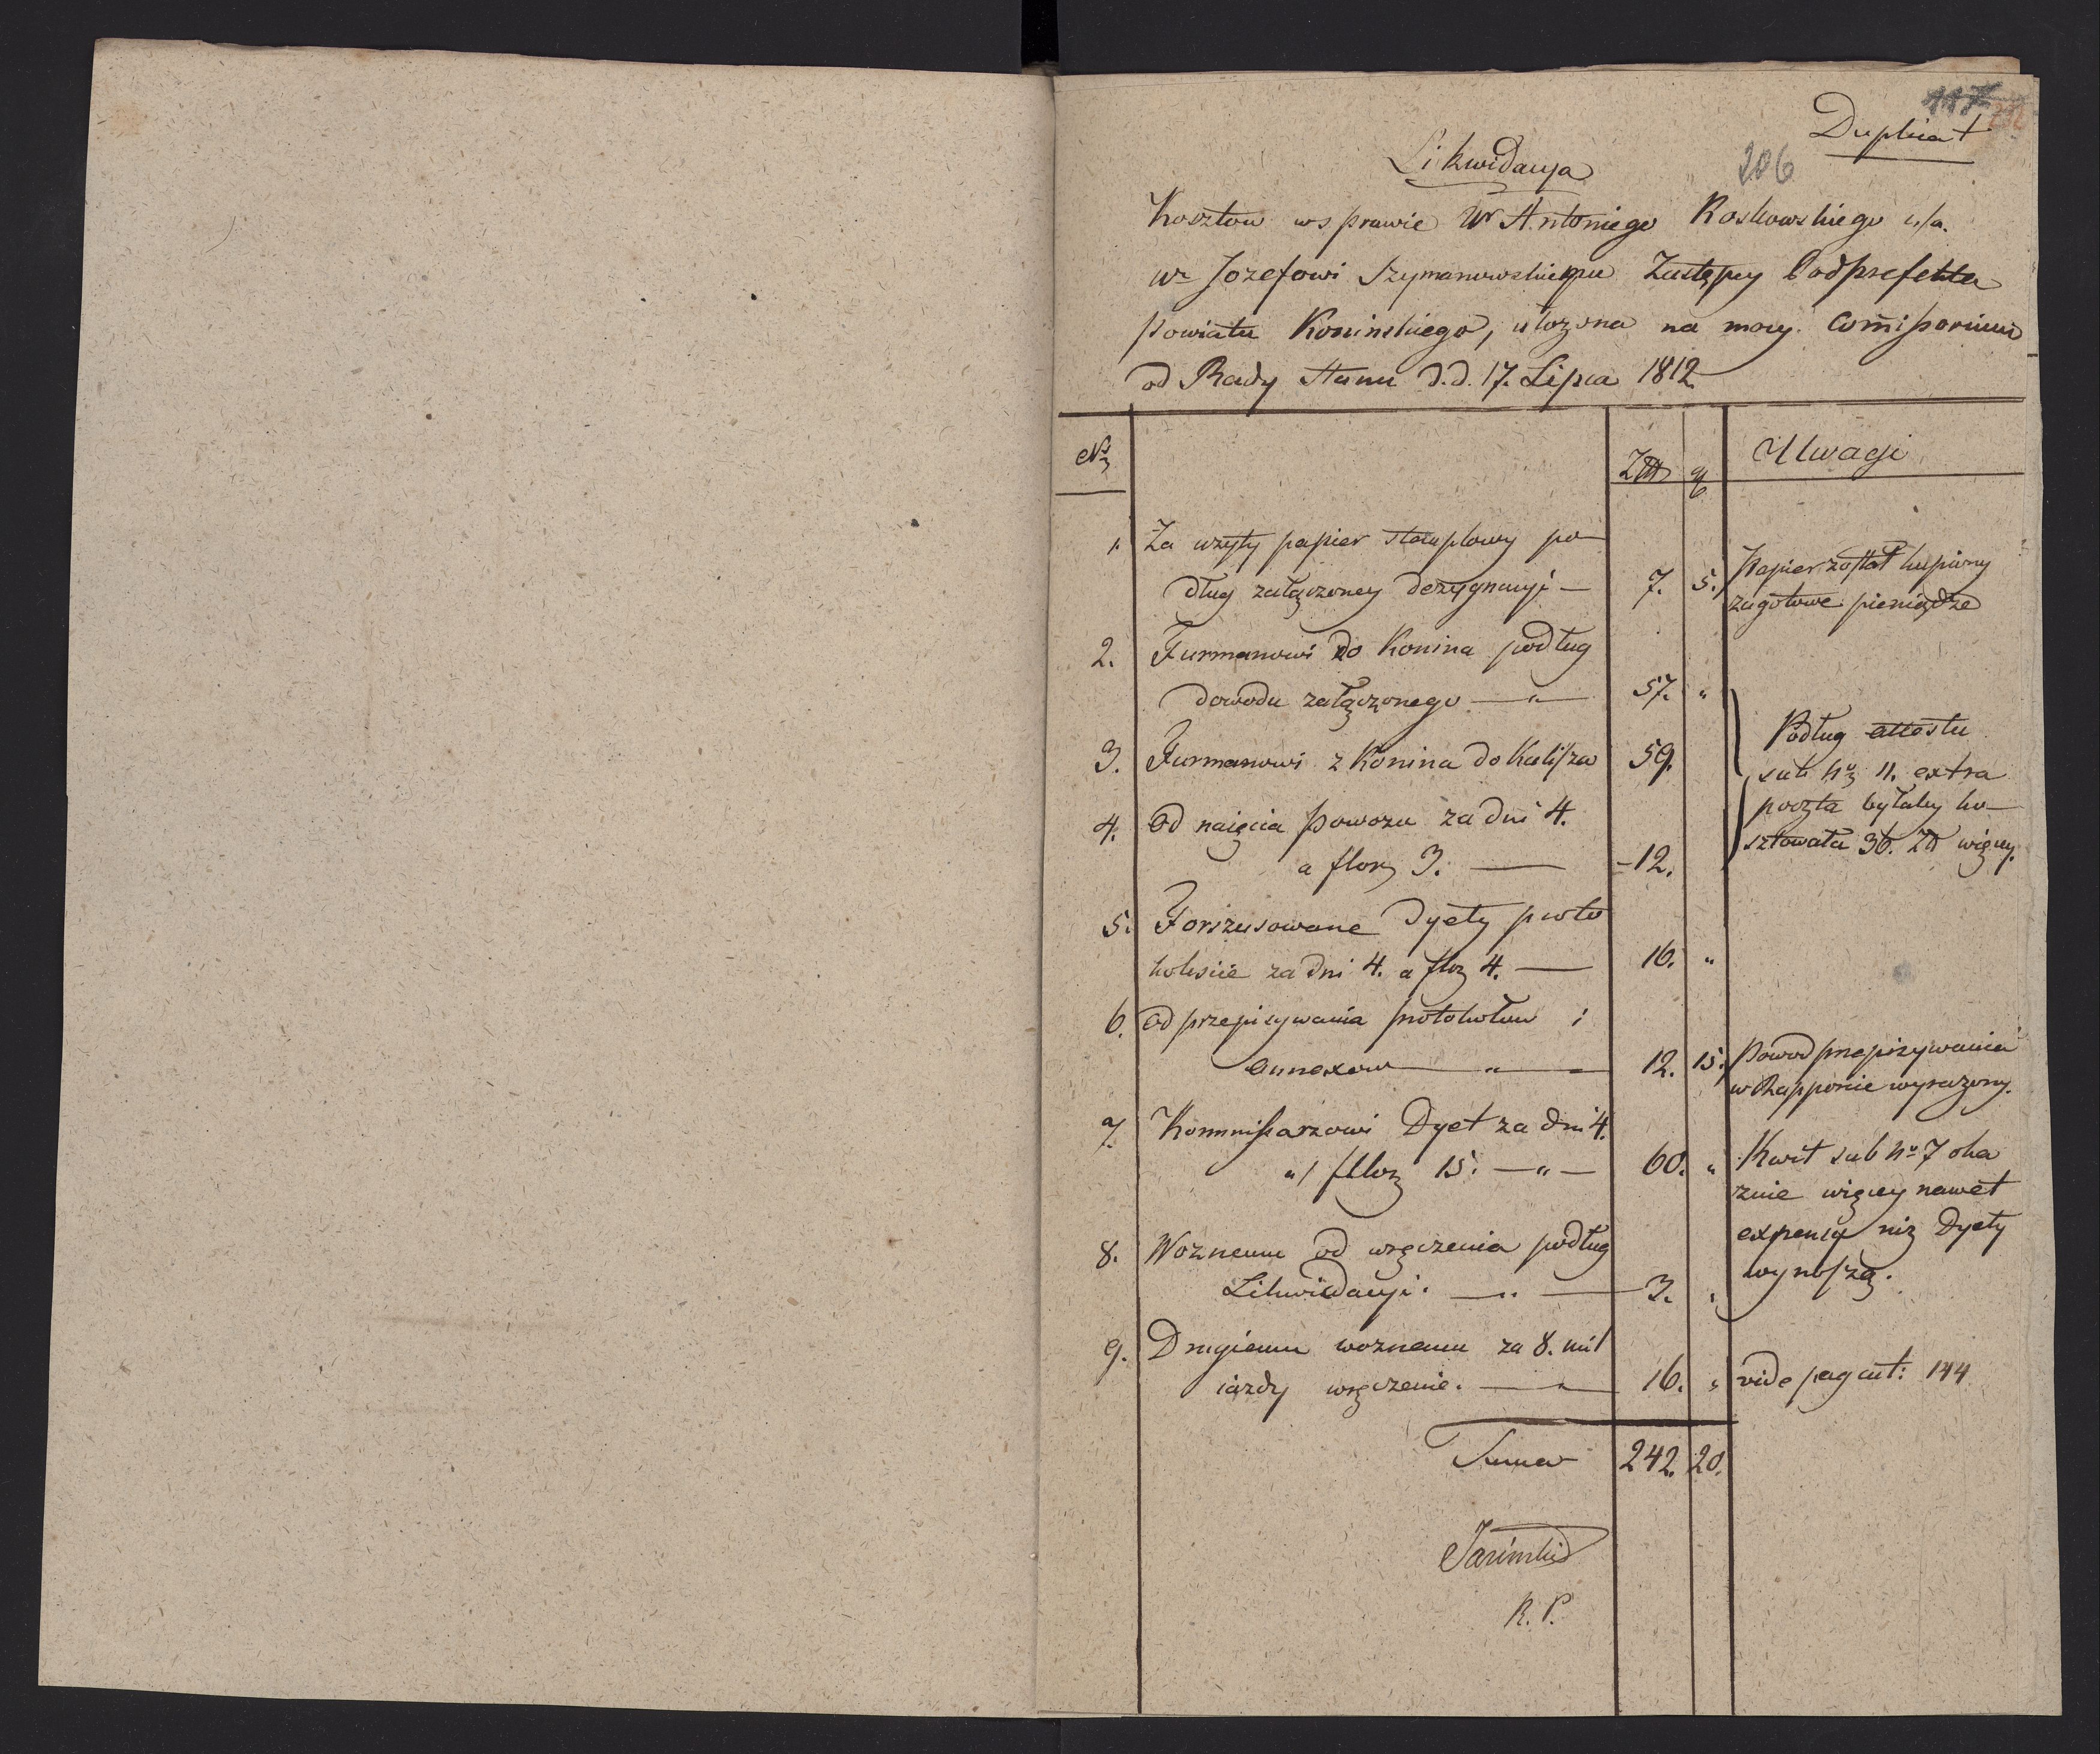 117
Duplicat
206
Likwidacya
Kosztow w sprawie Wr Antoniego Roskowskiego c/a.
Wr Jozefowi Szymanowskiemu Zastępcy Podprefekta
Powiatu Konińskiego, ułozona na mocy Com̃issorium
od Rady Stanu d.d. 17. Lipca 1812
No Złł gr Uwagi
1. Za uzyty papier stęplowy po-
dług załączoney dezygnacyi — 7. 5. Papier został kupiony
zagotowe pieniądze
2. Furmanowi do Konina podług
dowodu załączonego — " — 57. "
3. Furmanowi z Konina do Kalisza 59.
Podług attestu
sub No 11. extra
poczta byłaby ko-
sztowała 36. Zł więcey.
4. Od naięcia powozu za dni 4.
a flor 3. — 12.
5. Forszusowane Dyety proto
koliscie za dni 4. a flor 4. — 16. "
6. Od przepisywania protokołow i
annexow — " — 12. 15. Powod przepisywania
w Rapporcie wyrazony.
7. Kommissarzowi Dyet za dni 4.
a / fllor 15. — " — 60. " Kwit sub No 7 oka
znie więcey nawet
expensy niz Dyety
wynoszą.
8. Woznemu od wręczenia podług
Likwidacyi. — " — 3. "
9. Drugiemu woznemu za 8. mil
iazdy wręczenie. — " — 16. " vide pag act: 144
Suma 242. 20.
R. P.